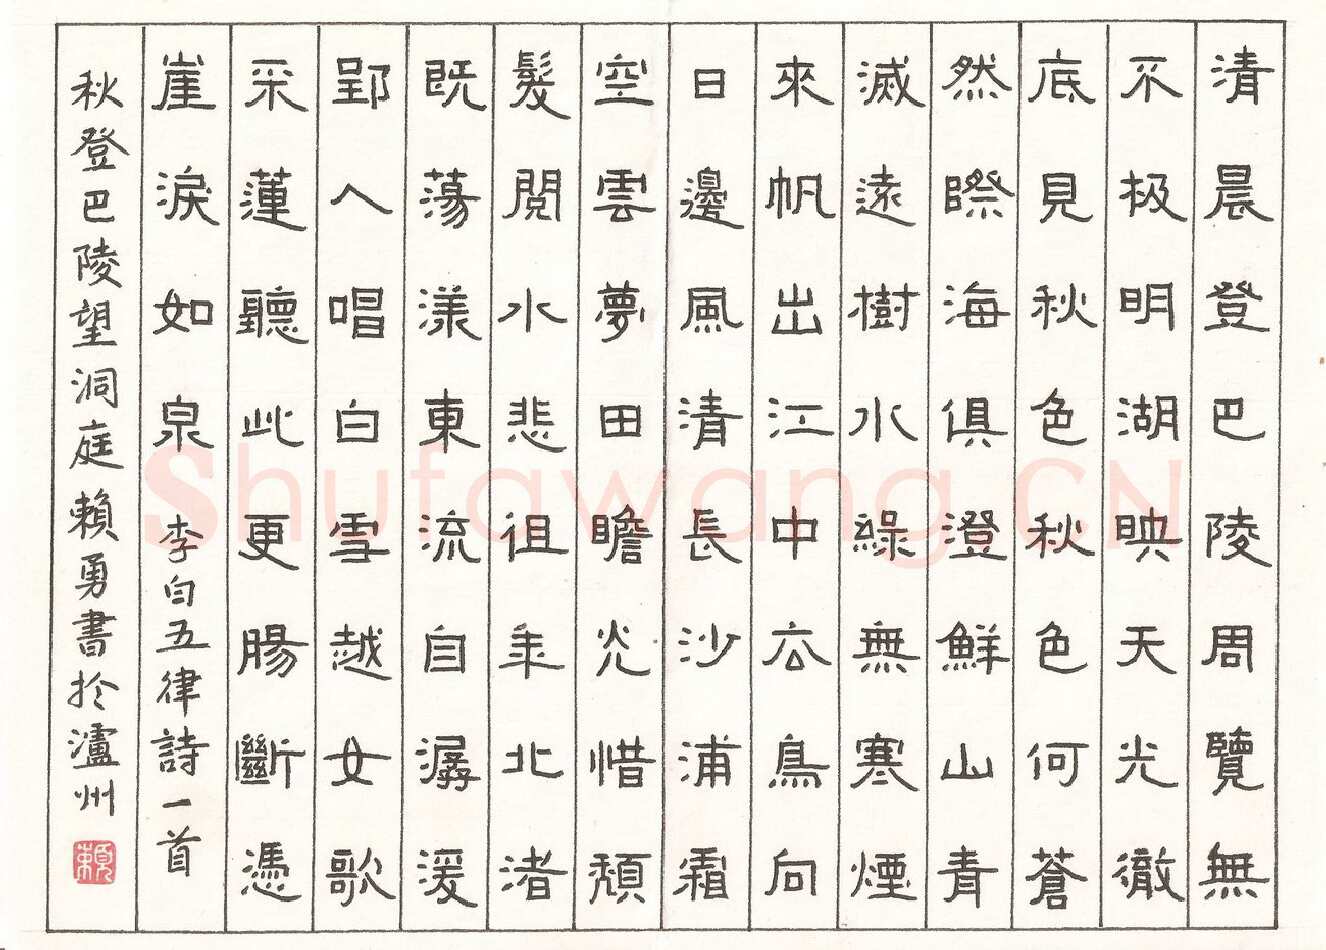 清晨登巴陵周覽無
不极明湖映天光徹
底見秋色秋色何蒼
然際海俱澄鮮山青
滅遠樹水綠無寒煙
來帆出江中公鳥向
日邊風清長沙浦霜
空雲夢田瞻光惜頹
髮閱水悲徂年北渚
既蕩漾東流自潺湲
郢人唱白雪越女歌
采蓮聽此更腸斷憑
崖淚如泉 李白五律詩一首
秋登巴陵望洞庭 賴勇書於瀘州
賴
Shufawang.CN